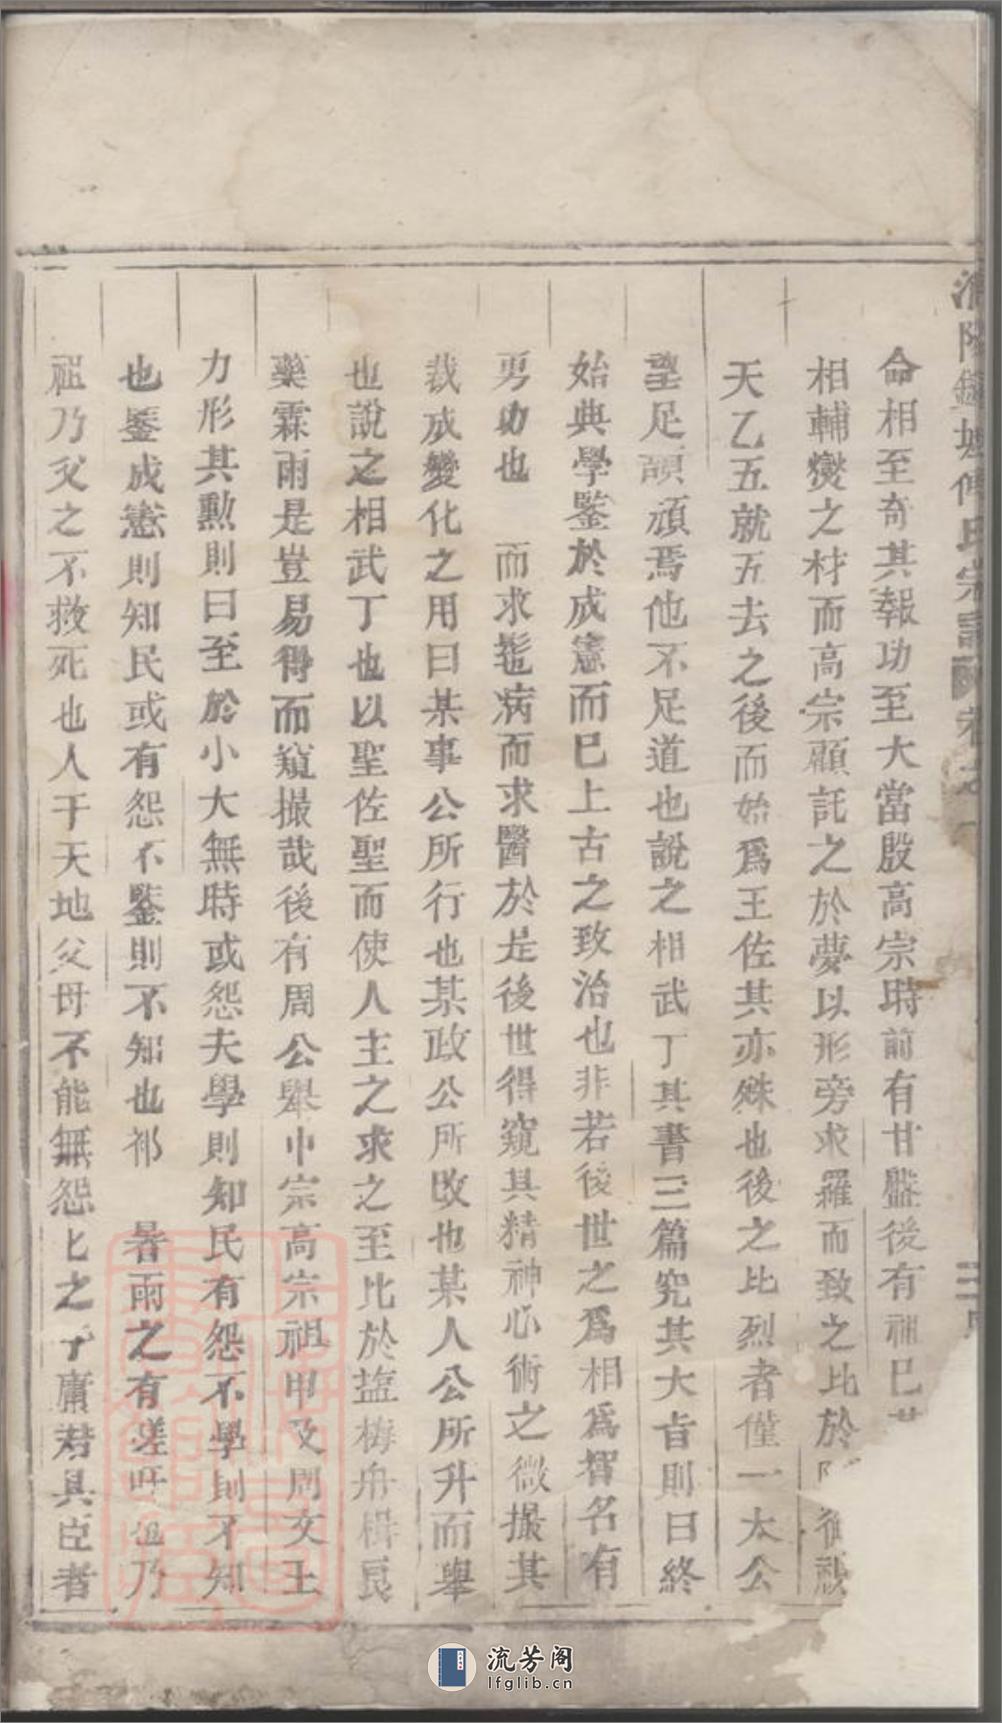 傅氏宗譜 卷之一
命相至奇其報功至大當殷高宗時前有甘盤後有祖巳
相輔燮之材而高宗顧託之於夢以形旁求羅而致之比於
天乙五就五去之後而始爲王佐其亦殊也後之比烈者僅一太公
望足頡頏焉他不足道也說之相武丁其書三篇究其大旨則曰終
始典學鑒於成憲而巳上古之致治也非若後世之爲相爲智名有
勇功也 而求髢病而求醫於是後世得窺其精神心術之微撮其
裁成變化之用曰某事公所行也某政公所改也某人公所升而舉
也說之相武丁也以聖佐聖而使人主之求之至比於塩梅舟楫良
藥霖雨是豈易得而窺撮哉後有周公舉中宗高宗祖甲及周文王
力形其勲則曰至於小大無時或怨夫學則知民有怨不學則不知
也鑒成憲則知民或有怨不鑒則不知也祁 暑雨之有嗟吁也乃
祖乃父之不救死也人于天地父母不能無怨匕之 庸若具臣者
流芳阁
lfglib.cn